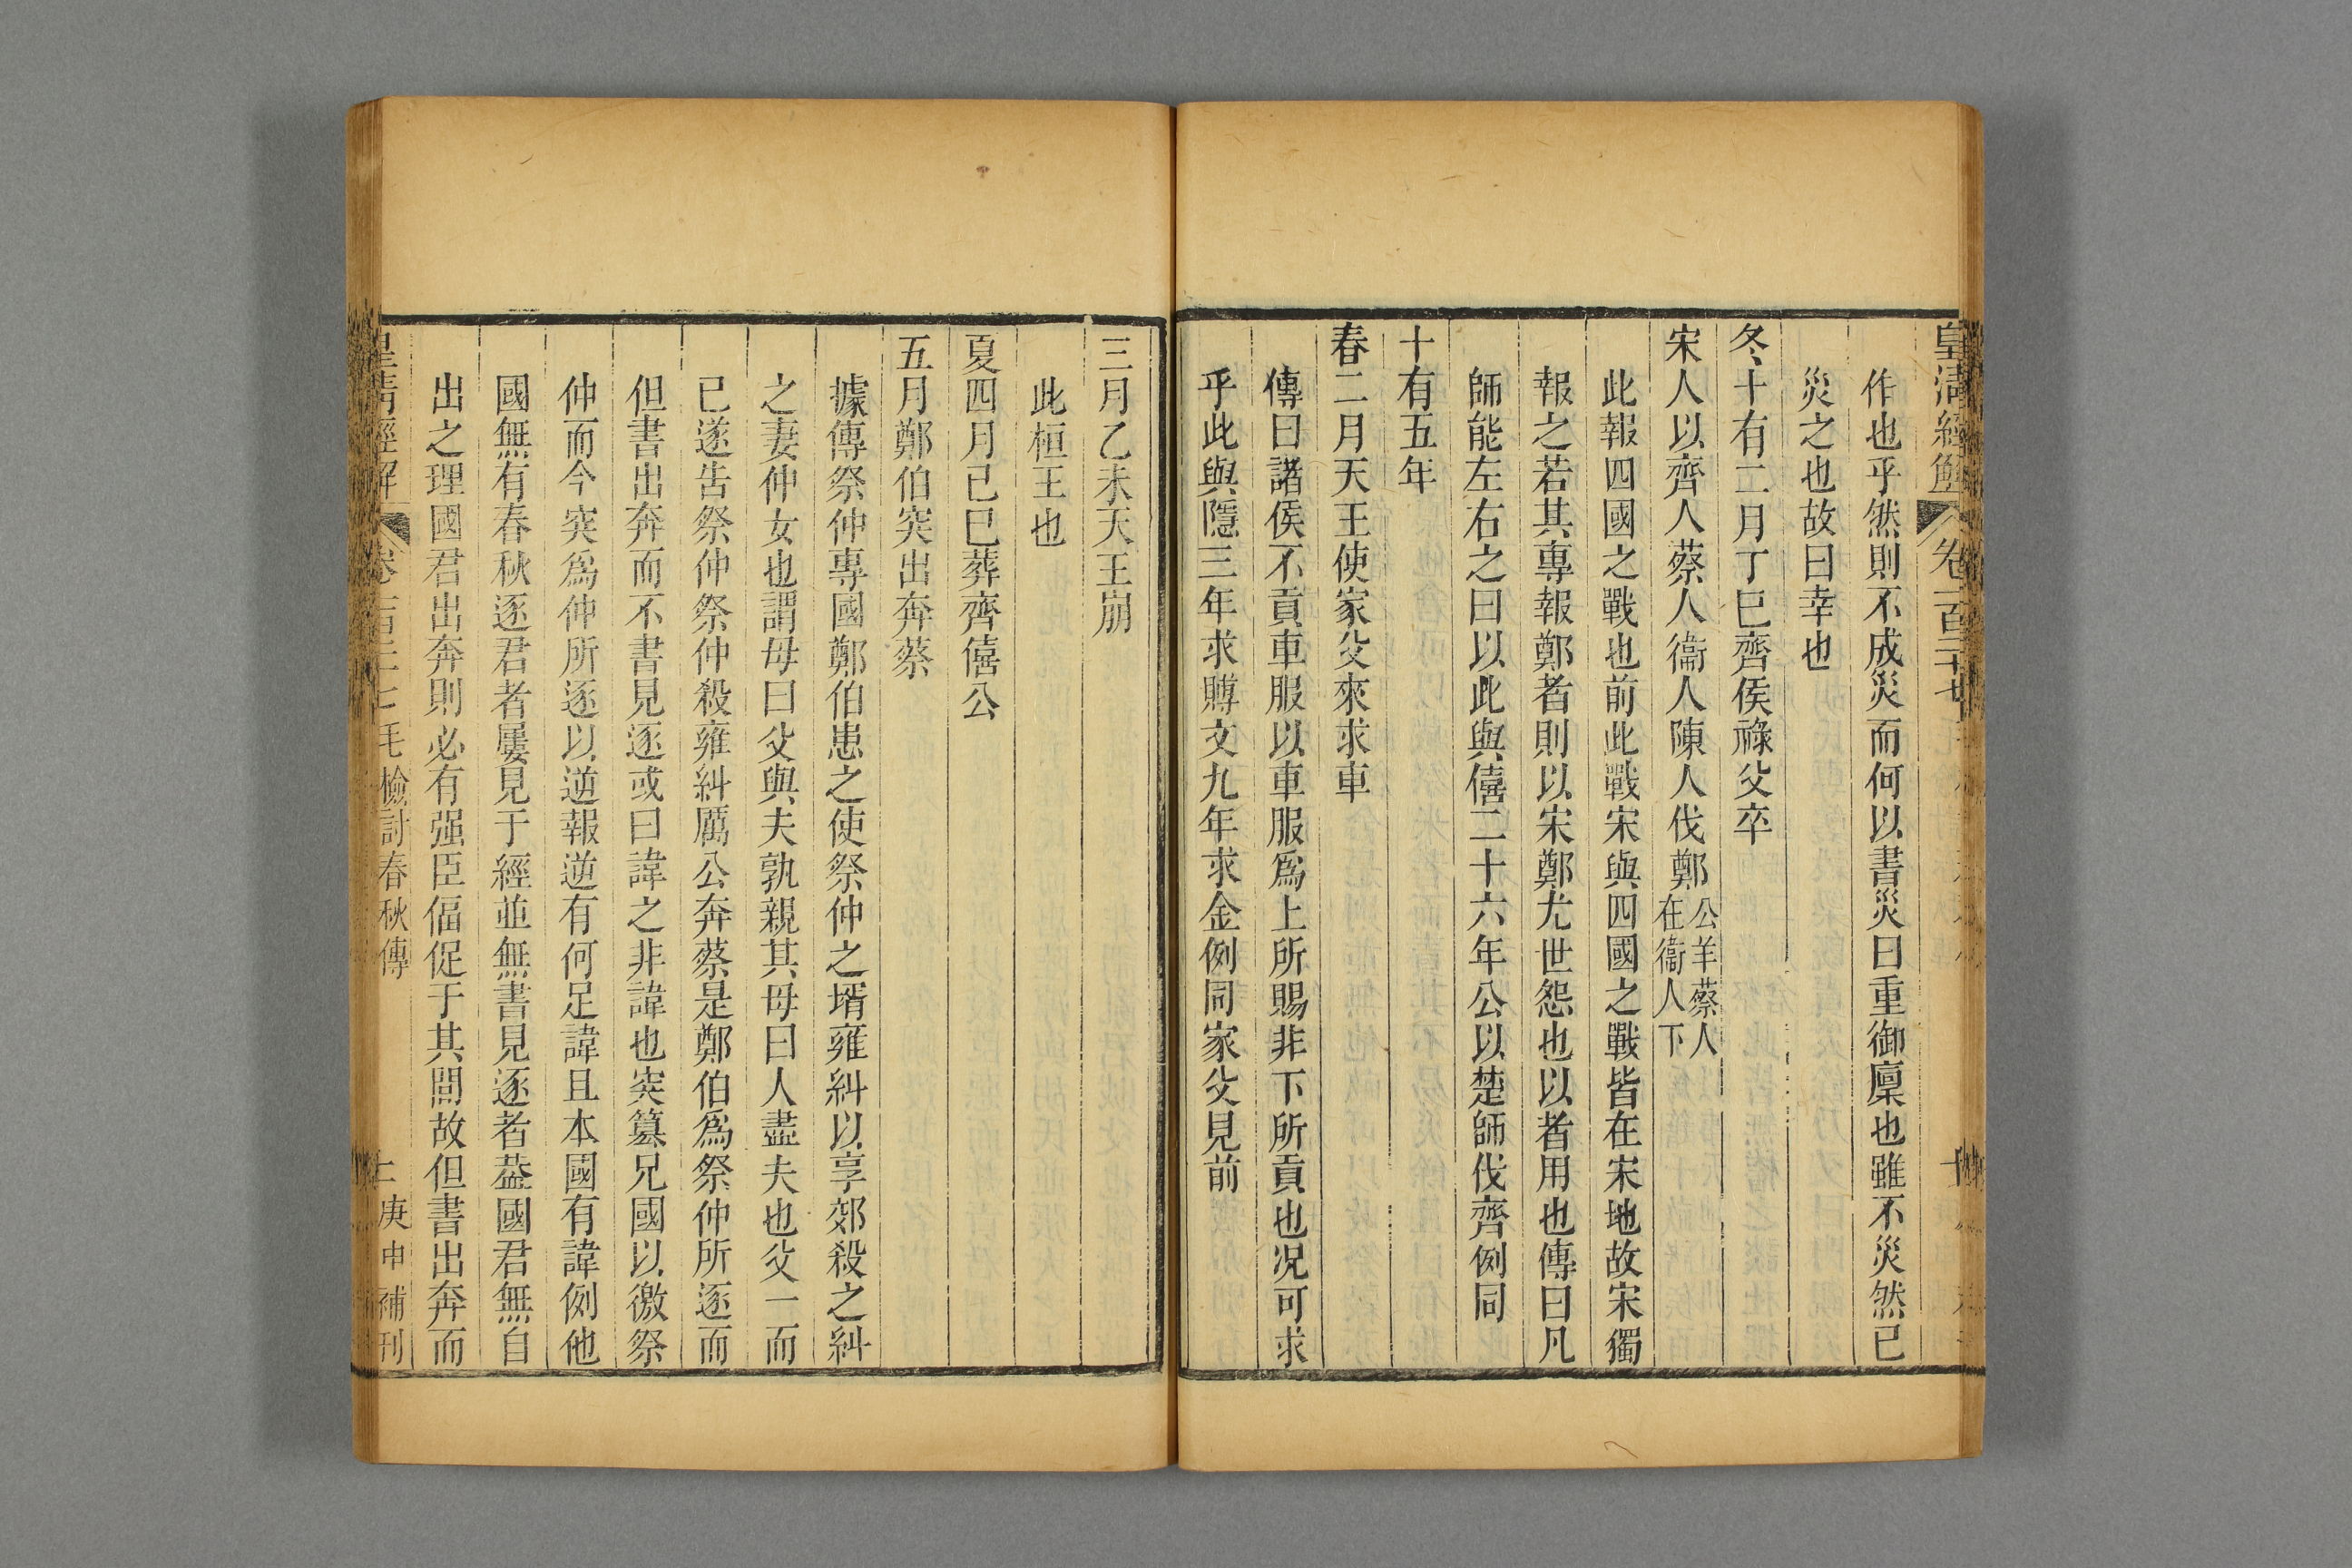 皇清經解 卷一百二十七
作也乎然則不成災而何以書災曰重御廩也雖不災然已
災之也故曰幸也
冬十有二月丁巳齊侯祿父卒
宋人以齊人蔡人衞人陳人伐鄭公羊蔡人在衞人下
此報四國之戰也前此戰宋與四國之戰皆在宋地故宋獨
報之若其專報鄭者則以宋鄭尤世怨也以者用也傳曰凡
師能左右之曰以此與僖二十六年公以楚師伐齊例同
十有五年
春二月天王使家父來求車
傳曰諸侯不貢車服以車服爲上所賜非下所貢也況可求
乎此與隱三年求賻文九年求金例同家父見前
三月乙未天王崩
此桓王也
夏四月己巳葬齊僖公
五月鄭伯突出奔蔡
據傳祭仲專國鄭伯患之使祭仲之壻雍糾以享郊殺之糾
之妻仲女也謂母曰父與夫孰親其母曰人盡夫也父一而
已遂告祭仲祭仲殺雍糾厲公奔蔡是鄭伯爲祭仲所逐而
但書出奔而不書見逐或曰諱之非諱也突簒兄國以徼祭
仲而今突爲仲所逐以逆報逆有何足諱且本國有諱例他
國無有春秋逐君者屢見于經並無書見逐者葢國君無自
出之理國君出奔則必有强臣偪促于其間故但書出奔而
皇淸經解 卷一百二十七 毛檢討春秋傳 庚申補刊